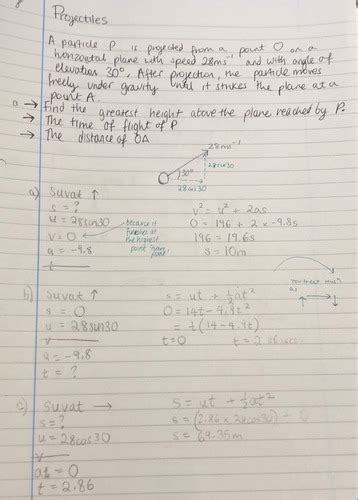 Projectiles
A particle P is projected from a point O on a
horizontal plane with speed 28ms⁻¹ and with angle of
elevation 30°. After projection, the particle moves
freely under gravity until it strikes the plane at a
point A.
a → Find the greatest height above the plane reached by P.
→ The time of flight of P
→ The distance of OA
28ms⁻¹
30°
28sin30
28cos30
a) suvat ↑
s = ?
u = 28sin30
v = 0
a = -9.8
t
because it
finishes at
the highest
point
v² = u² + 2as
0 = 196 + 2 x -9.8s
196 = 19.6s
s = 10m
b) suvat ↑
s = 0
u = 28sin30
v
a = -9.8
t = ?
s = ut + ½at²
0 = 14t - 4.9t²
= t(14 - 4.9t)
t = 0
c) suvat →
s = ?
u = 28cos30
v
a = 0
t = 2.86
s = ut + ½at²
s = (2.86 x 28cos30) - 0
s = 69.35m